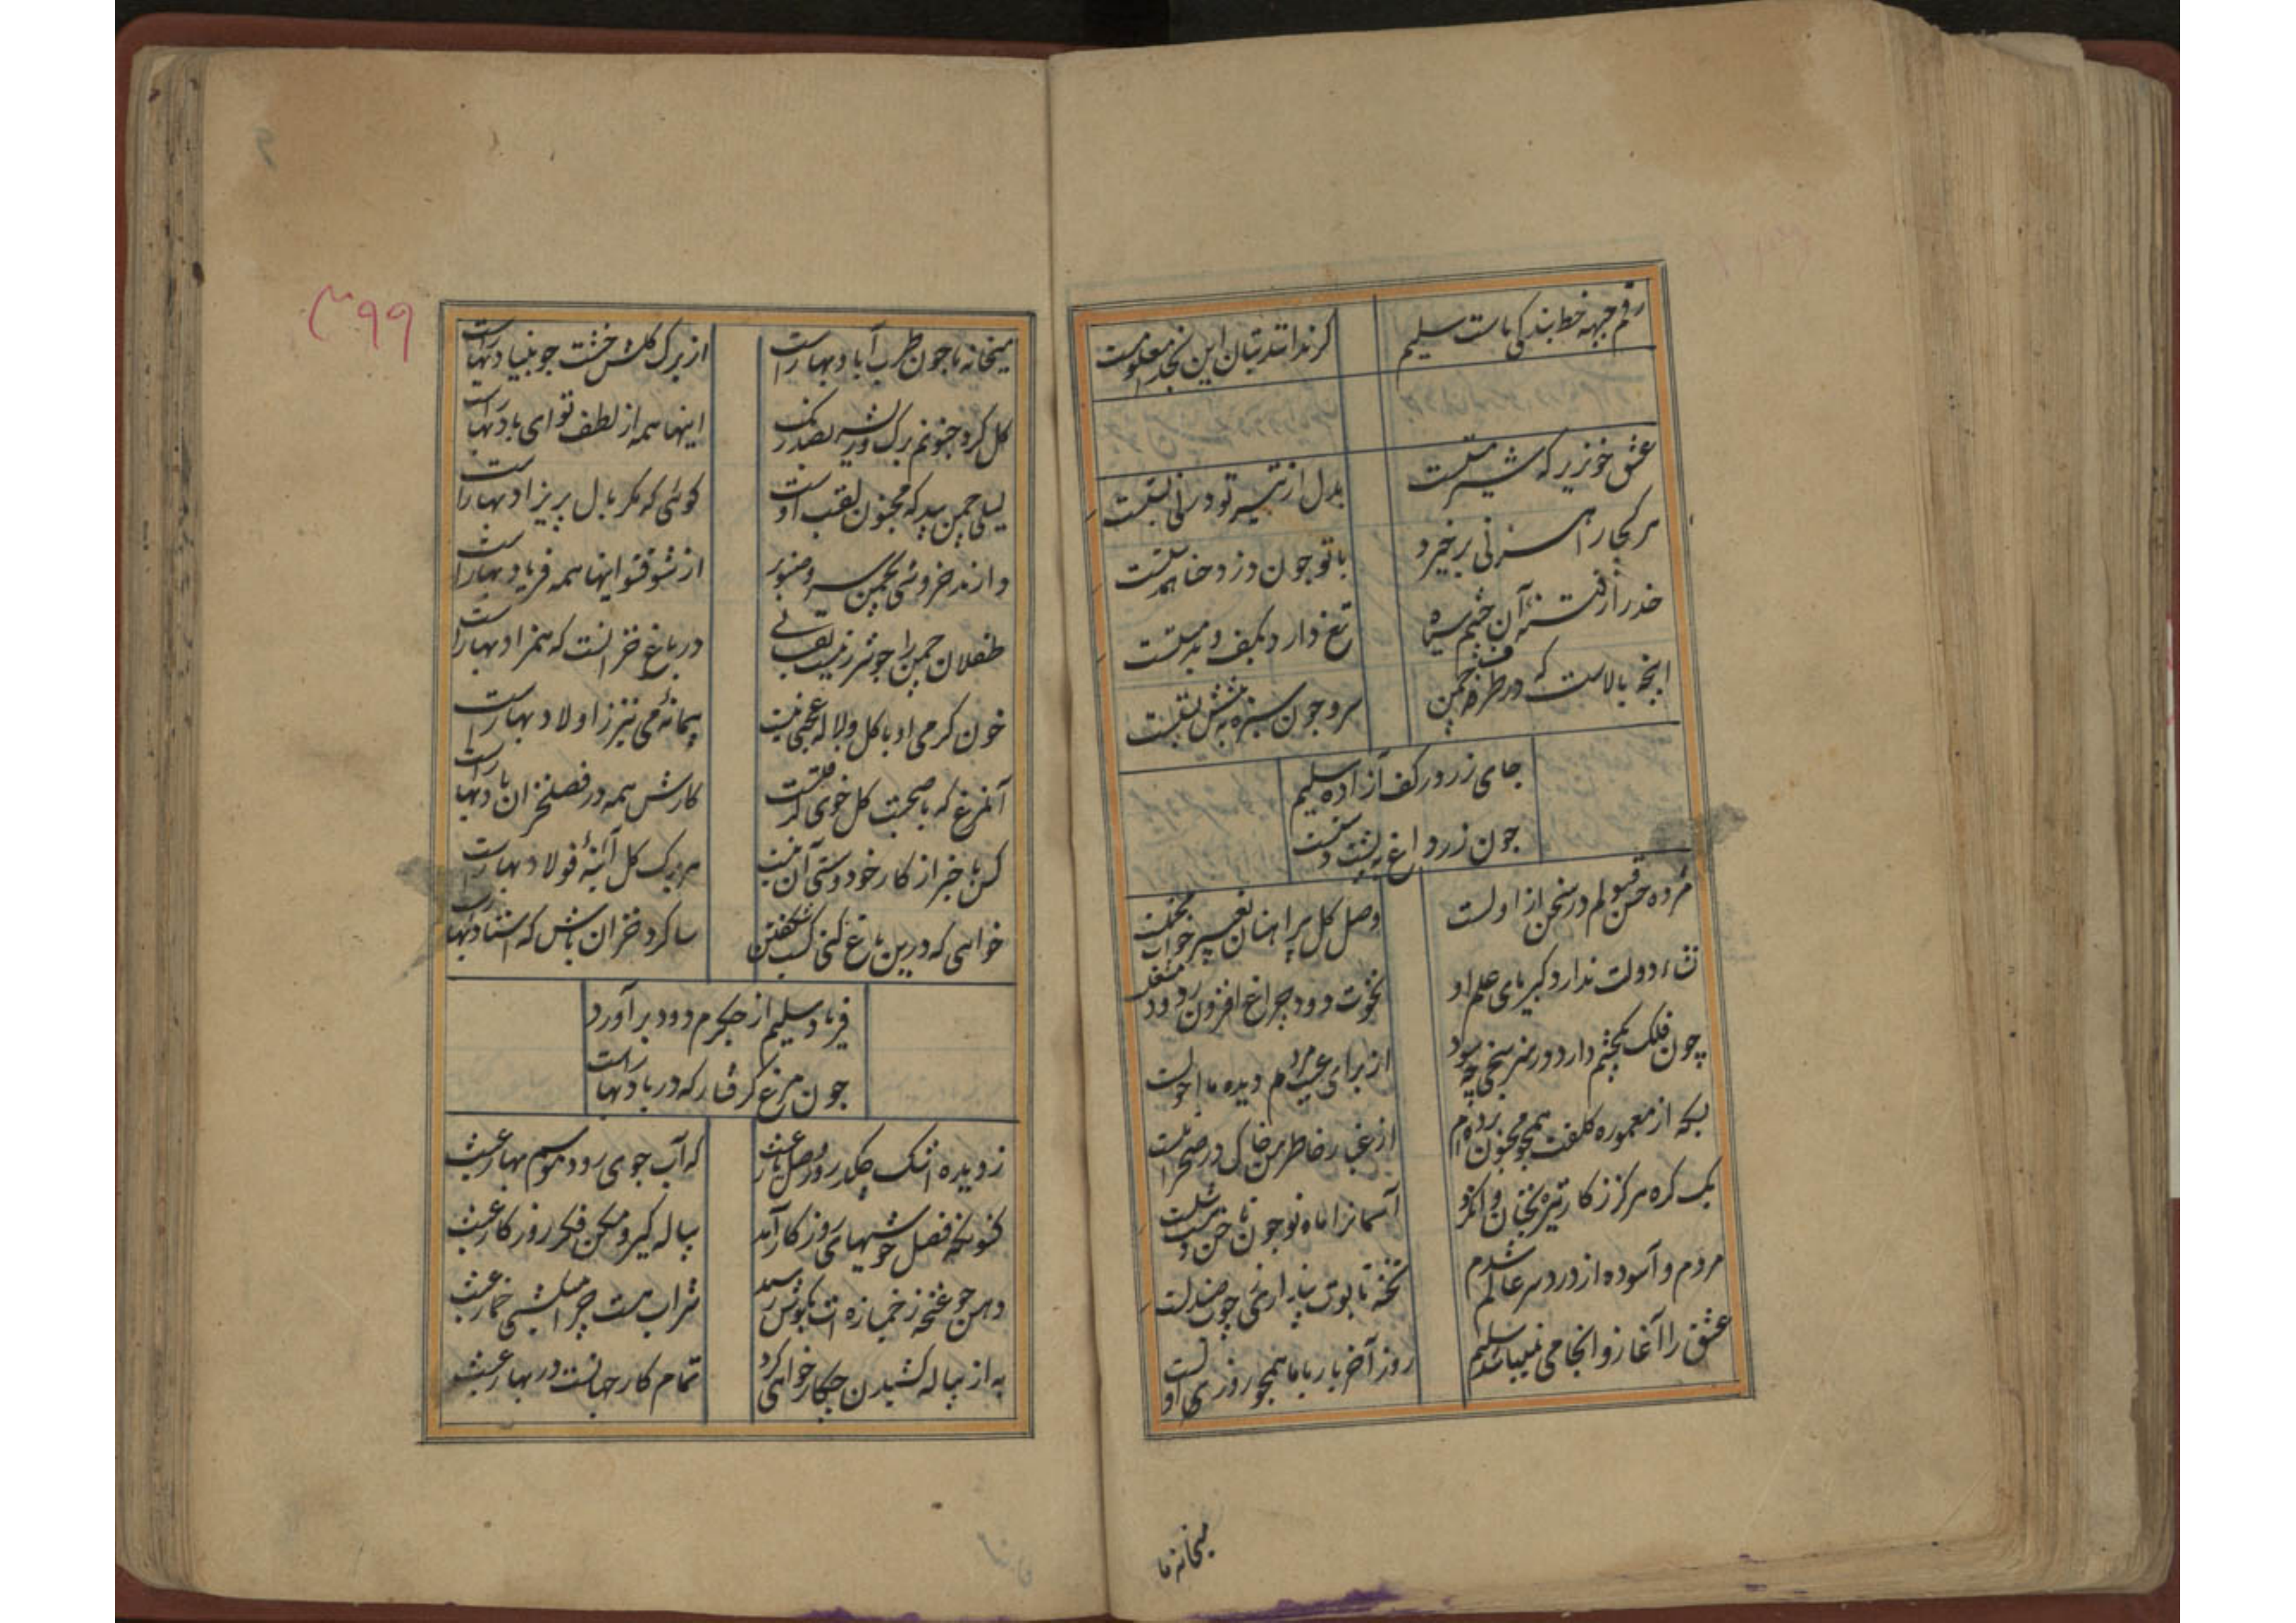 رقم جبهه خط بندکی ماست سلیم
کر ندانند بتان این بخدا معلومست
عشق خونریز که شیر مستست
بدل از تیر تو دستی بستست
هر کجا راهزنی برخیزد
با تو چون دزد حنا همدستست
حذر از فتنه آن چشم سیاه
تیغ دارد بکف و بدمستست
اینچه بالاست که در طرف چمن
سرو چون سبزه به پیشش پستست
جای زر در کف آزاده سلیم
چون زر داغ به پشت دستست
مژده حسن قبولم در سخن از اولست
وصل کل پیراهنان تعبیر خواب مخملست
نشاء دولت ندارد کبریای علم او
نخوت دود چراغ افزون ز دود مشعلست
چون فلک یکچشم دارد در هنر سنجی چه سود
از برای عیب مردم دیده ما احولست
بسکه از معموره کلفت همچو مجنون برده‌ام
از غبار خاطر من خاکی در صحراست
یک کره هرکز ز کار تیره بختان وا نکرد
آسمانرا ماه نو چون ناخن دست شلست
مردم و آسوده از دردسر عالم شدم
تخته تابوت پنداری چوب صندلست
عشق را آغاز و انجامی نمیباشد سلیم
روز آخر یار با ما همچو روز اولست
میخانه ما
۳۹۹
میخانه ما چون طرب آباد بهارست
از برک کلش خشت چو بنیاد بهارست
کل کرد جنونم برک و ریشه بصد رنک
اینها همه از لطف تو ای باد بهارست
لیلی چمن بید که مجنون لقب اوست
کوئی که مکر بال پریزاد بهارست
دارند خروشی بچمن سرو و صنوبر
از شوق تو اینها همه فریاد بهارست
طفلان چمن را چو شرر نیست بقائی
در باغ خزانست که همزاد بهارست
خون کرمی او با کل و لاله عجبی نیست
پیمانه می نیز ز اولاد بهارست
آنمرغ که با صحبت کل خوی کرفتست
کارش همه در فصل خزان یاد بهارست
کس با خبر از کار خود و هستی آن نیست
هر برک کل آئینه فولاد بهارست
خواهی که درین باغ کنی کسب شکفتن
شاکرد خزان باش که استاد بهارست
فریاد سلیم از جکرم دود برآورد
چون مرغ کرفتار که در یاد بهارست
ز دیده اشک چکد روز وصل یار عبث
که آب جوی رود موسم بهار عبث
کنونکه فصل خوشیهای روزکار آمد
پیاله کیر و مکن فکر روزکار عبث
دهن چو غنچه ز خمیازه ات بکوش رسید
شراب هست چرا میکشی خمار عبث
به از پیاله کشیدن چکار خواهی کرد
تمام کار جهانست در بهار عبث